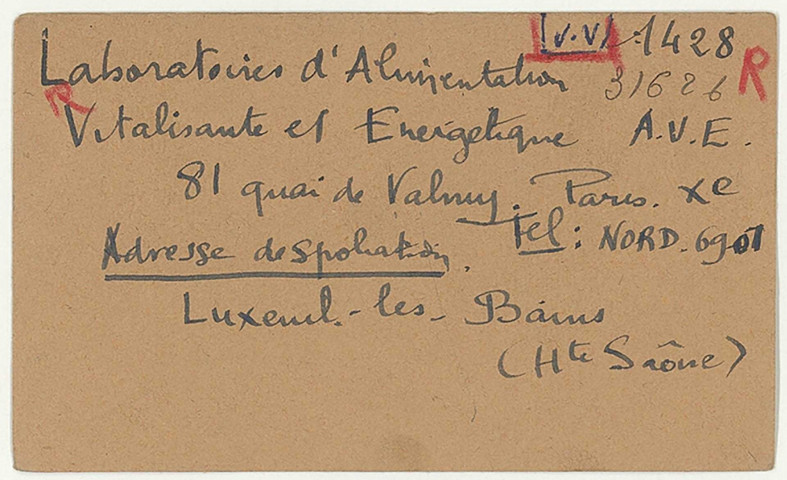 (V.V) 1428
Laboratoires d'Alimentation 31626 R
R
Vitalisante et Energétique A.V.E.
81 quai de Valmy. Paris. Xe
Tel: NORD. 6901
Adresse de spoliation.
Luxeuil-les-Bains
(Hte Saône)